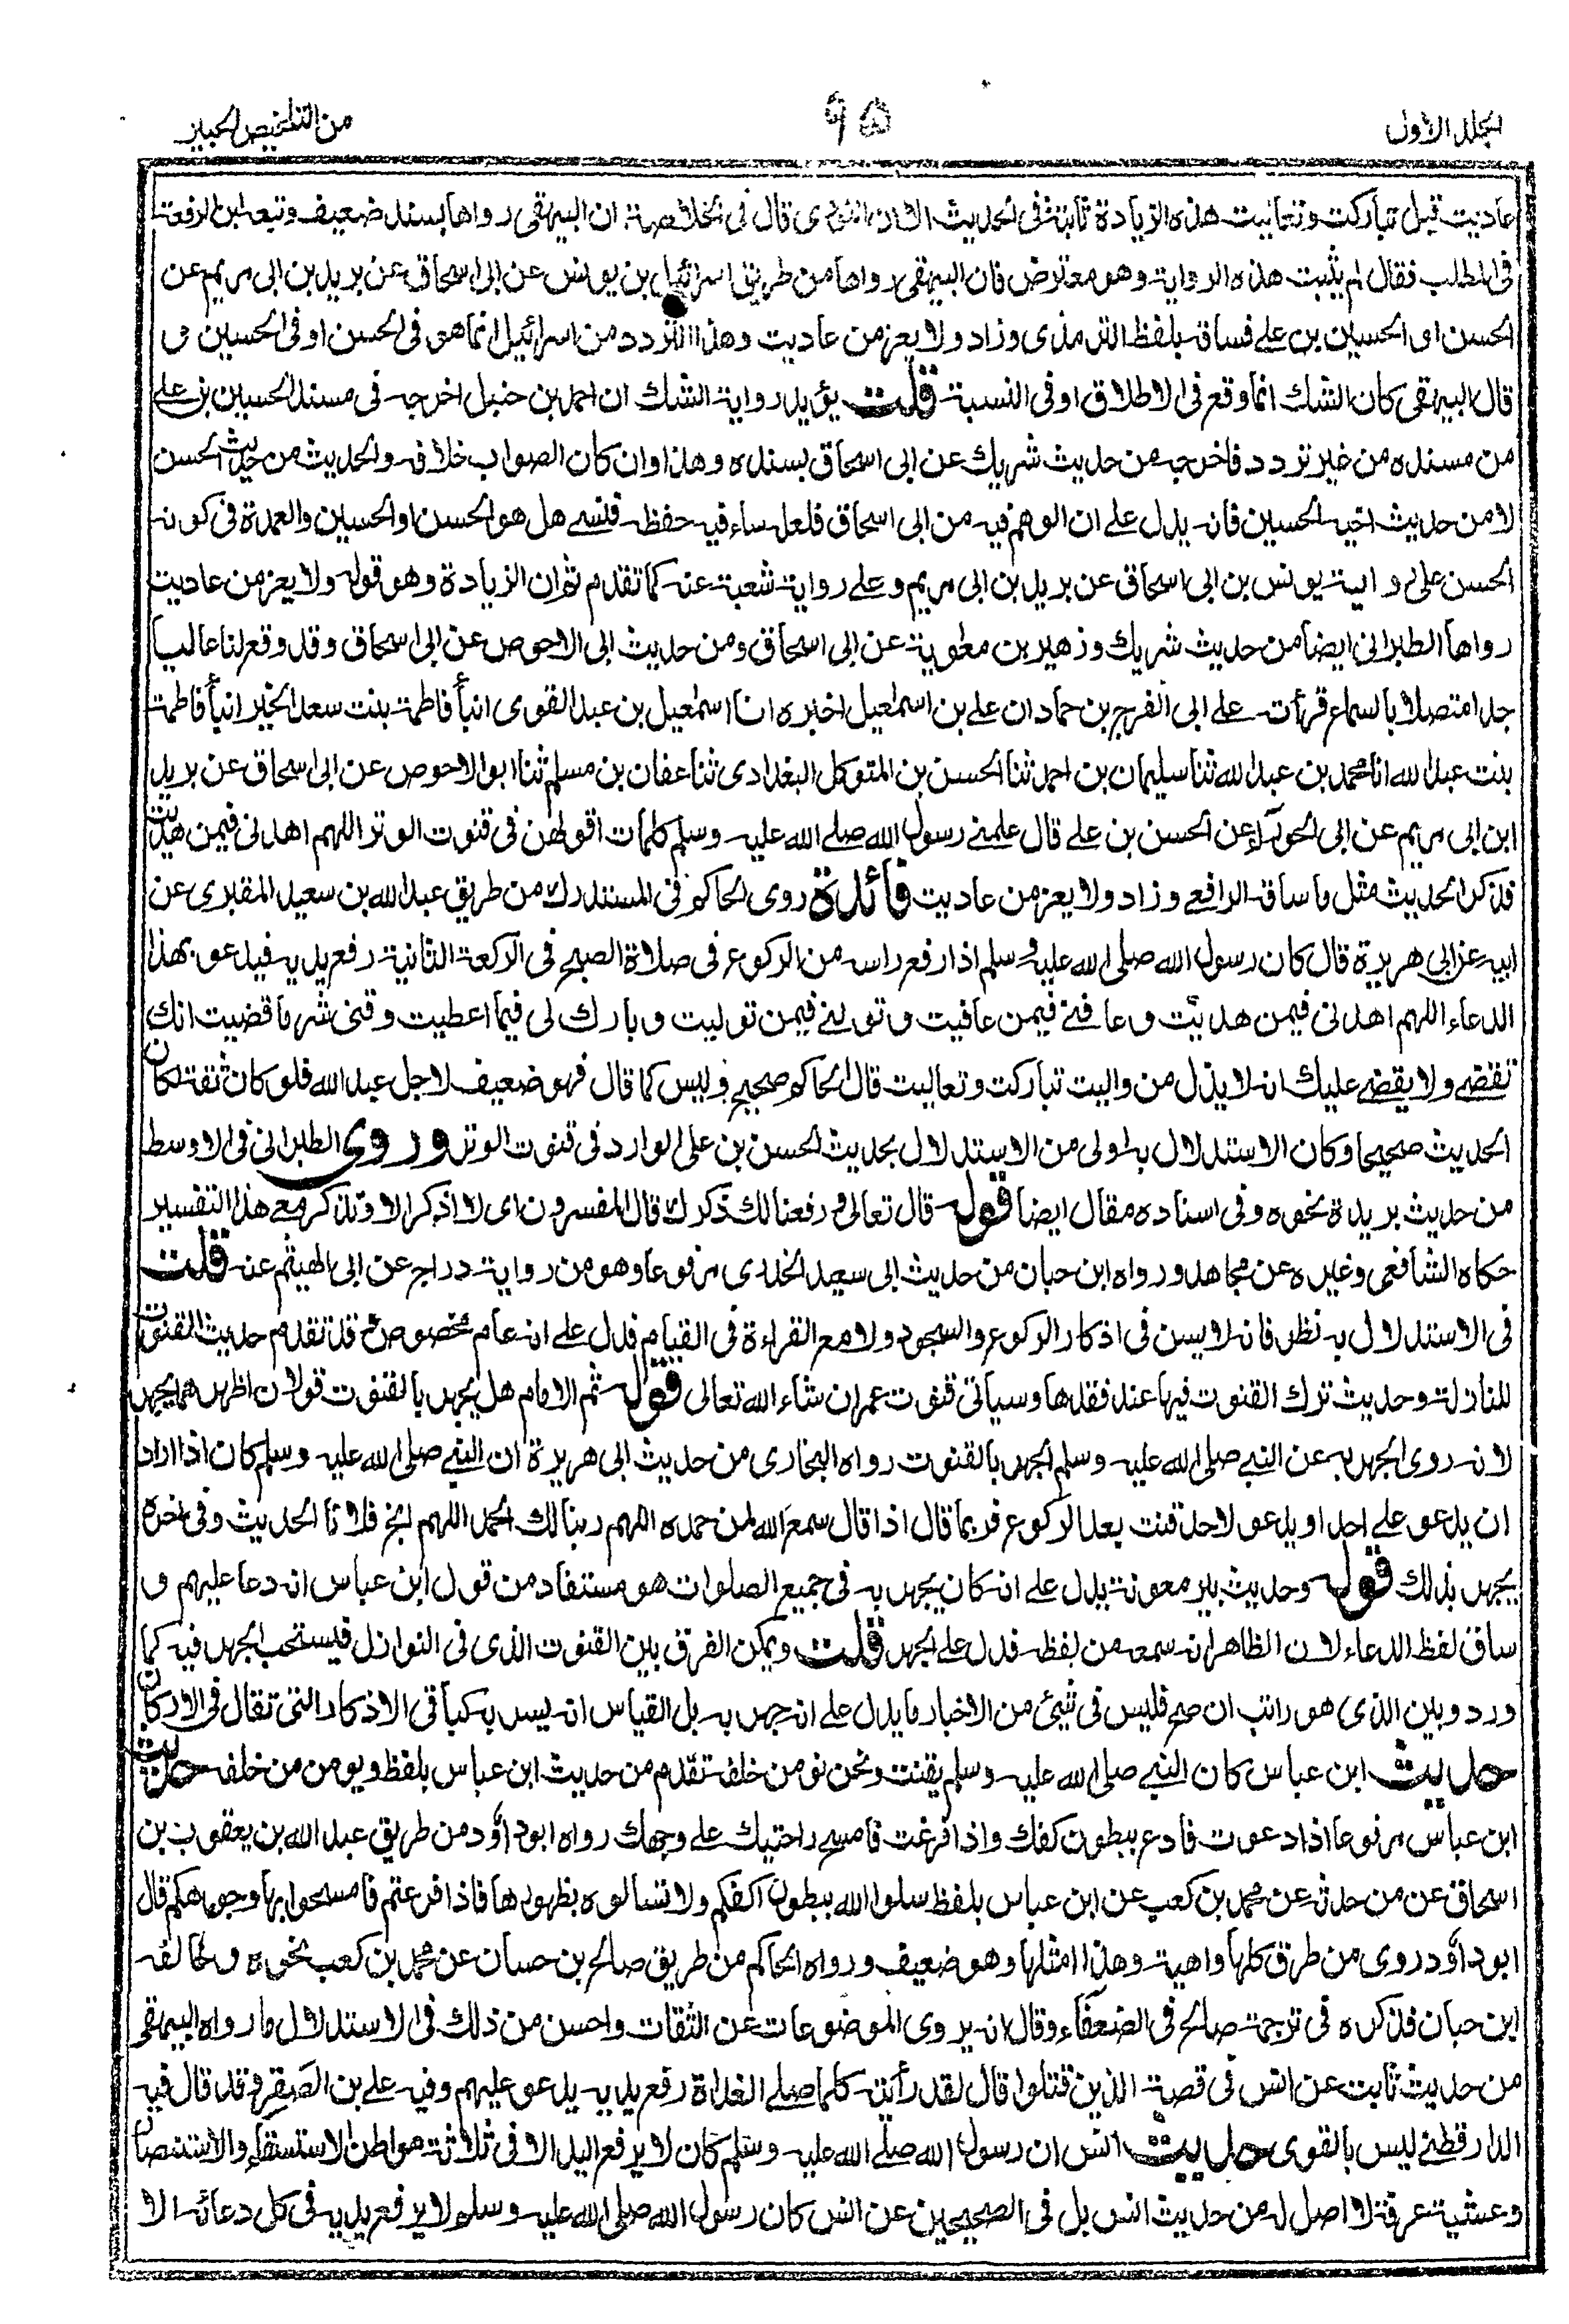 الجلد الاول
٩٥
من التلخيص الحبير
عاديت قبل تباركت وتعاليت هذه الزيادة ثابتة فى الحديث الا ان النووى قال فى الخلاصة ان البيهقى رواها بسند ضعيف وتبعه ابن الرفعة
فى المطلب فقال لم يثبت هذه الرواية وهو معترض فان البيهقى رواها من طريق اسرائيل بن يونس عن ابى اسحاق عن بريد بن ابى مريم عن
الحسن او الحسين بن على فساقه بلفظ الترمذى وزاد ولا يعز من عاديت وهذا التردد من اسرائيل انما هو فى الحسن او فى الحسين و
قال البيهقى كان الشك انما وقع فى الاطلاق او فى النسبة قلت يؤيد رواية الشك ان احمد بن حنبل اخرجه فى مسند الحسين بن على
من مسنده من غير تردد فاخرجه من حديث شريك عن ابى اسحاق بسنده وهذا وان كان الصواب خلافه والحديث من حديث الحسن
لا من حديث اخيه الحسين فانه يدل على ان الوهم فيه من ابى اسحاق فلعله ساء فيه حفظه فنسى هل هو الحسن او الحسين والعمدة فى كونه
الحسن على رواية يونس بن ابى اسحاق عن بريد بن ابى مريم وعلى رواية شعبة عنه كما تقدم ثم ان الزيادة وهو قوله ولا يعز من عاديت
رواها الطبرانى ايضا من حديث شريك وزهير بن معوية عن ابى اسحاق ومن حديث ابى الاحوص عن ابى اسحاق وقد وقع لنا عاليا
جدا متصلا بالسماع قرأت على ابى الفرج بن حماد ان على بن اسمٰعيل اخبره انا اسمٰعيل بن عبد القوى انبأ فاطمة بنت سعد الخير انبأ فاطمة
بنت عبد الله انا محمد بن عبد الله ثنا سليمان بن احمد ثنا الحسن بن المتوكل البغدادى ثنا عفان بن مسلم ثنا ابو الاحوص عن ابى اسحاق عن بريد
ابن ابى مريم عن ابى الحورآء عن الحسن بن على قال علمنى رسول الله صلى الله عليه وسلم كلمات اقولهن فى قنوت الوتر اللهم اهدنى فيمن هديت
فذكر الحديث مثل ما ساقه الرافعى وزاد ولا يعز من عاديت فائدة روى الحاكم فى المستدرك من طريق عبد الله بن سعيد المقبرى عن
ابيه عن ابى هريرة قال كان رسول الله صلى الله عليه وسلم اذا رفع راسه من الركوع فى صلاة الصبح فى الركعة الثانية رفع يديه فيدعو بهذا
الدعاء اللهم اهدنى فيمن هديت وعافنى فيمن عافيت وتولنى فيمن توليت وبارك لى فيما اعطيت وقنى شر ما قضيت انك
تقضى ولا يقضى عليك انه لا يذل من واليت تباركت وتعاليت قال الحاكم صحيح وليس كما قال فهو ضعيف لاجل عبد الله فلو كان ثقة لكان
الحديث صحيحا وكان الاستدلال به اولى من الاستدلال بحديث الحسن بن على الوارد فى قنوت الوتر وروى الطبرانى فى الاوسط
من حديث بريدة نحوه وفى اسناده مقال ايضا قوله قال تعالى ورفعنا لك ذكرك قال المفسرون اى لا اذكر الا وتذكر معى هذا التفسير
حكاه الشافعى وغيره عن مجاهد ورواه ابن حبان من حديث ابى سعيد الخدرى مرفوعا وهو من رواية دراج عن ابى الهيثم عنه قلت
فى الاستدلال به نظر فانه لا يسن فى اذكار الركوع والسجود ولا مع القراءة فى القيام فدل على انه عام مخصوص قد تقدم حديث القنوت
للنازلة وحديث ترك القنوت فيها عند فقدها وسياتى قنوت عمر ان شاء الله تعالى قوله ثم الامام هل يجهر بالقنوت قولان اظهرهما يجهر
لانه روى الجهر به عن النبى صلى الله عليه وسلم الجهر بالقنوت رواه البخارى من حديث ابى هريرة ان النبى صلى الله عليه وسلم كان اذا اراد
ان يدعو على احد او يدعو لاحد قنت بعد الركوع فربما قال اذا قال سمع الله لمن حمده اللهم ربنا لك الحمد اللهم انج فلانا الحديث وفى اخره
يجهر بذلك قوله وحديث بير معونة يدل على انه كان يجهر به فى جميع الصلوات هو مستفاد من قول ابن عباس انه دعا عليهم و
ساق لفظ الدعاء لان الظاهر انه سمعه من لفظه فدل على الجهر قلت ويمكن الفرق بين القنوت الذى فى النوازل فيستحب الجهر فيه كما
ورد وبين الذى هو راتب ان صح فليس فى شيئ من الاخبار ما يدل على انه جهر به بل القياس انه يسر به كباقى الاذكار التى تقال فى الاركان
حديث ابن عباس كان النبى صلى الله عليه وسلم يقنت ونحن نومن خلفه تقدم من حديث ابن عباس بلفظ ويومن من خلفه حديث
ابن عباس مرفوعا اذا دعوت فادع ببطون كفك واذا فرغت فامسح راحتيك على وجهك رواه ابو داؤد من طريق عبد الله بن يعقوب بن
اسحاق عن من حدثه عن محمد بن كعب عن ابن عباس بلفظ سلوا الله ببطون اكفكم ولا تسالوه بظهورها فاذا فرغتم فامسحوا بها وجوهكم قال
ابو داؤد روى من طرق كلها واهية وهذا امثلها وهو ضعيف ورواه الحاكم من طريق صالح بن حسان عن محمد بن كعب نحوه وخالفه
ابن حبان فذكره فى ترجمة صالح فى الضعفآء وقال انه يروى الموضوعات عن الثقات واحسن من ذلك فى الاستدلال ما رواه البيهقى
من حديث ثابت عن انس فى قصة الذين قتلوا قال لقد رأيته كلما صلى الغداة رفع يديه يدعو عليهم وفيه على بن الصقر وقد قال فيه
الدارقطنى ليس بالقوى حديث انس ان رسول الله صلى الله عليه وسلم كان لا يرفع اليد الا فى ثلاثة مواطن الاستسقاء والاستنصار
وعشية عرفة لا اصل له من حديث انس بل فى الصحيحين عن انس كان رسول الله صلى الله عليه وسلم لا يرفع يديه فى كل دعائه الا